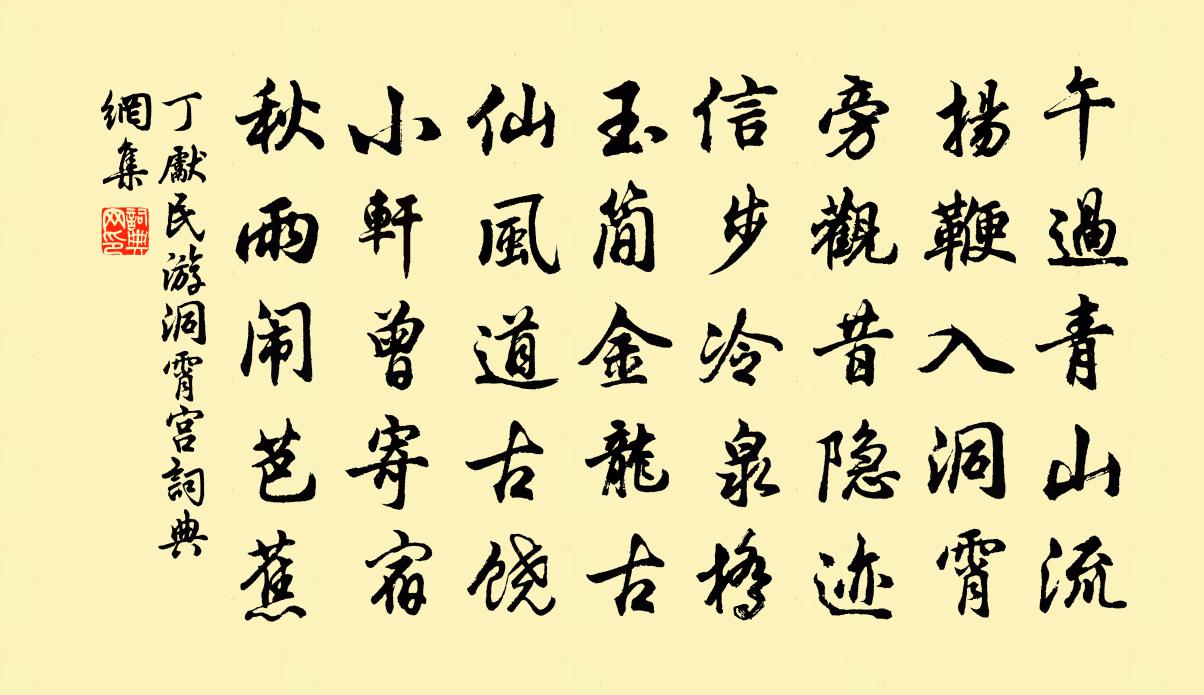 午過青山流
揚鞭入洞霄
旁觀昔隐迹
信步冷泉橋
玉简金龍古
仙風道古饶
小軒曾寄宿
秋雨闹芭蕉
丁獻民游洞霄宫詞典
網集
詞典
网印